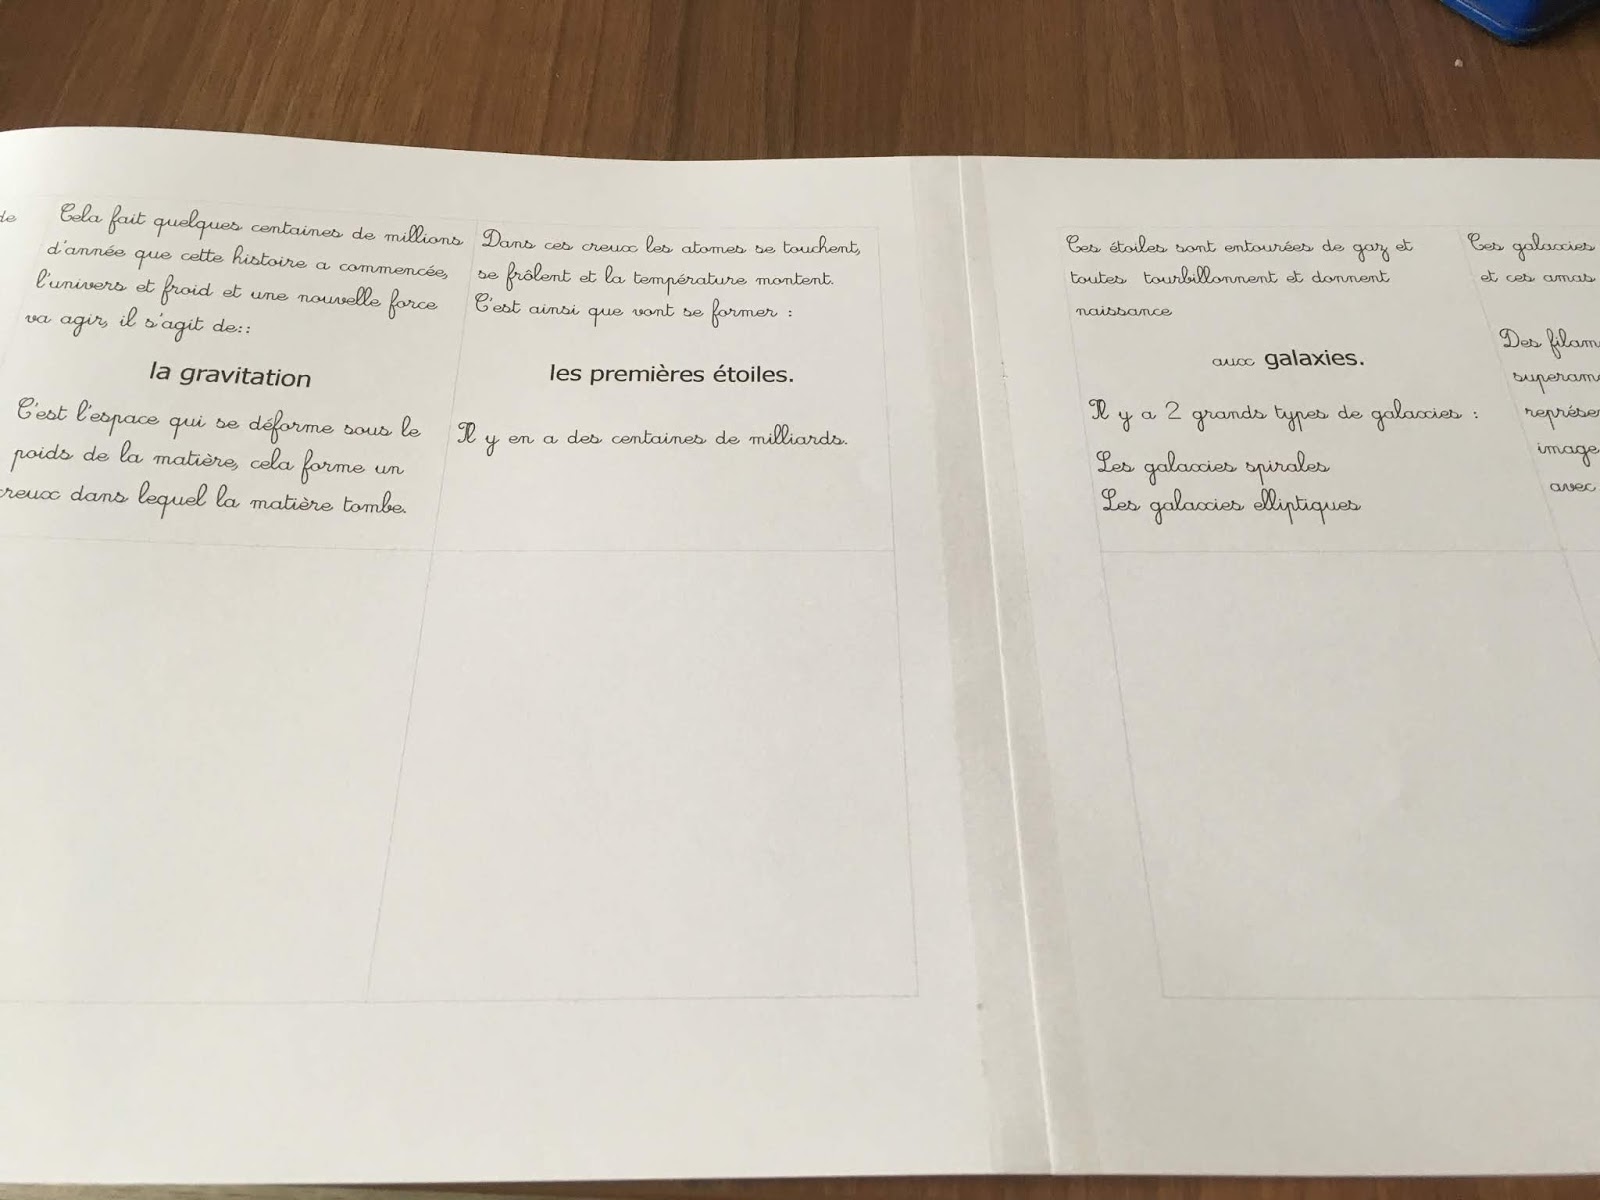 de
Cela fait quelques centaines de millions
d'année que cette histoire a commencée,
l'univers et froid et une nouvelle force
va agir, il s'agit de::
la gravitation
C'est l'espace qui se déforme sous le
poids de la matière, cela forme un
creux dans lequel la matière tombe.
Dans ces creux les atomes se touchent,
se frôlent et la température montent.
C'est ainsi que vont se former :
les premières étoiles.
Il y en a des centaines de milliards.
Ces étoiles sont entourées de gaz et
toutes tourbillonnent et donnent
naissance
aux galaxies.
Il y a 2 grands types de galaxies :
Les galaxies spirales
Les galaxies elliptiques
Ces galaxies
et ces amas
Des filam
superam
représe
image
avec